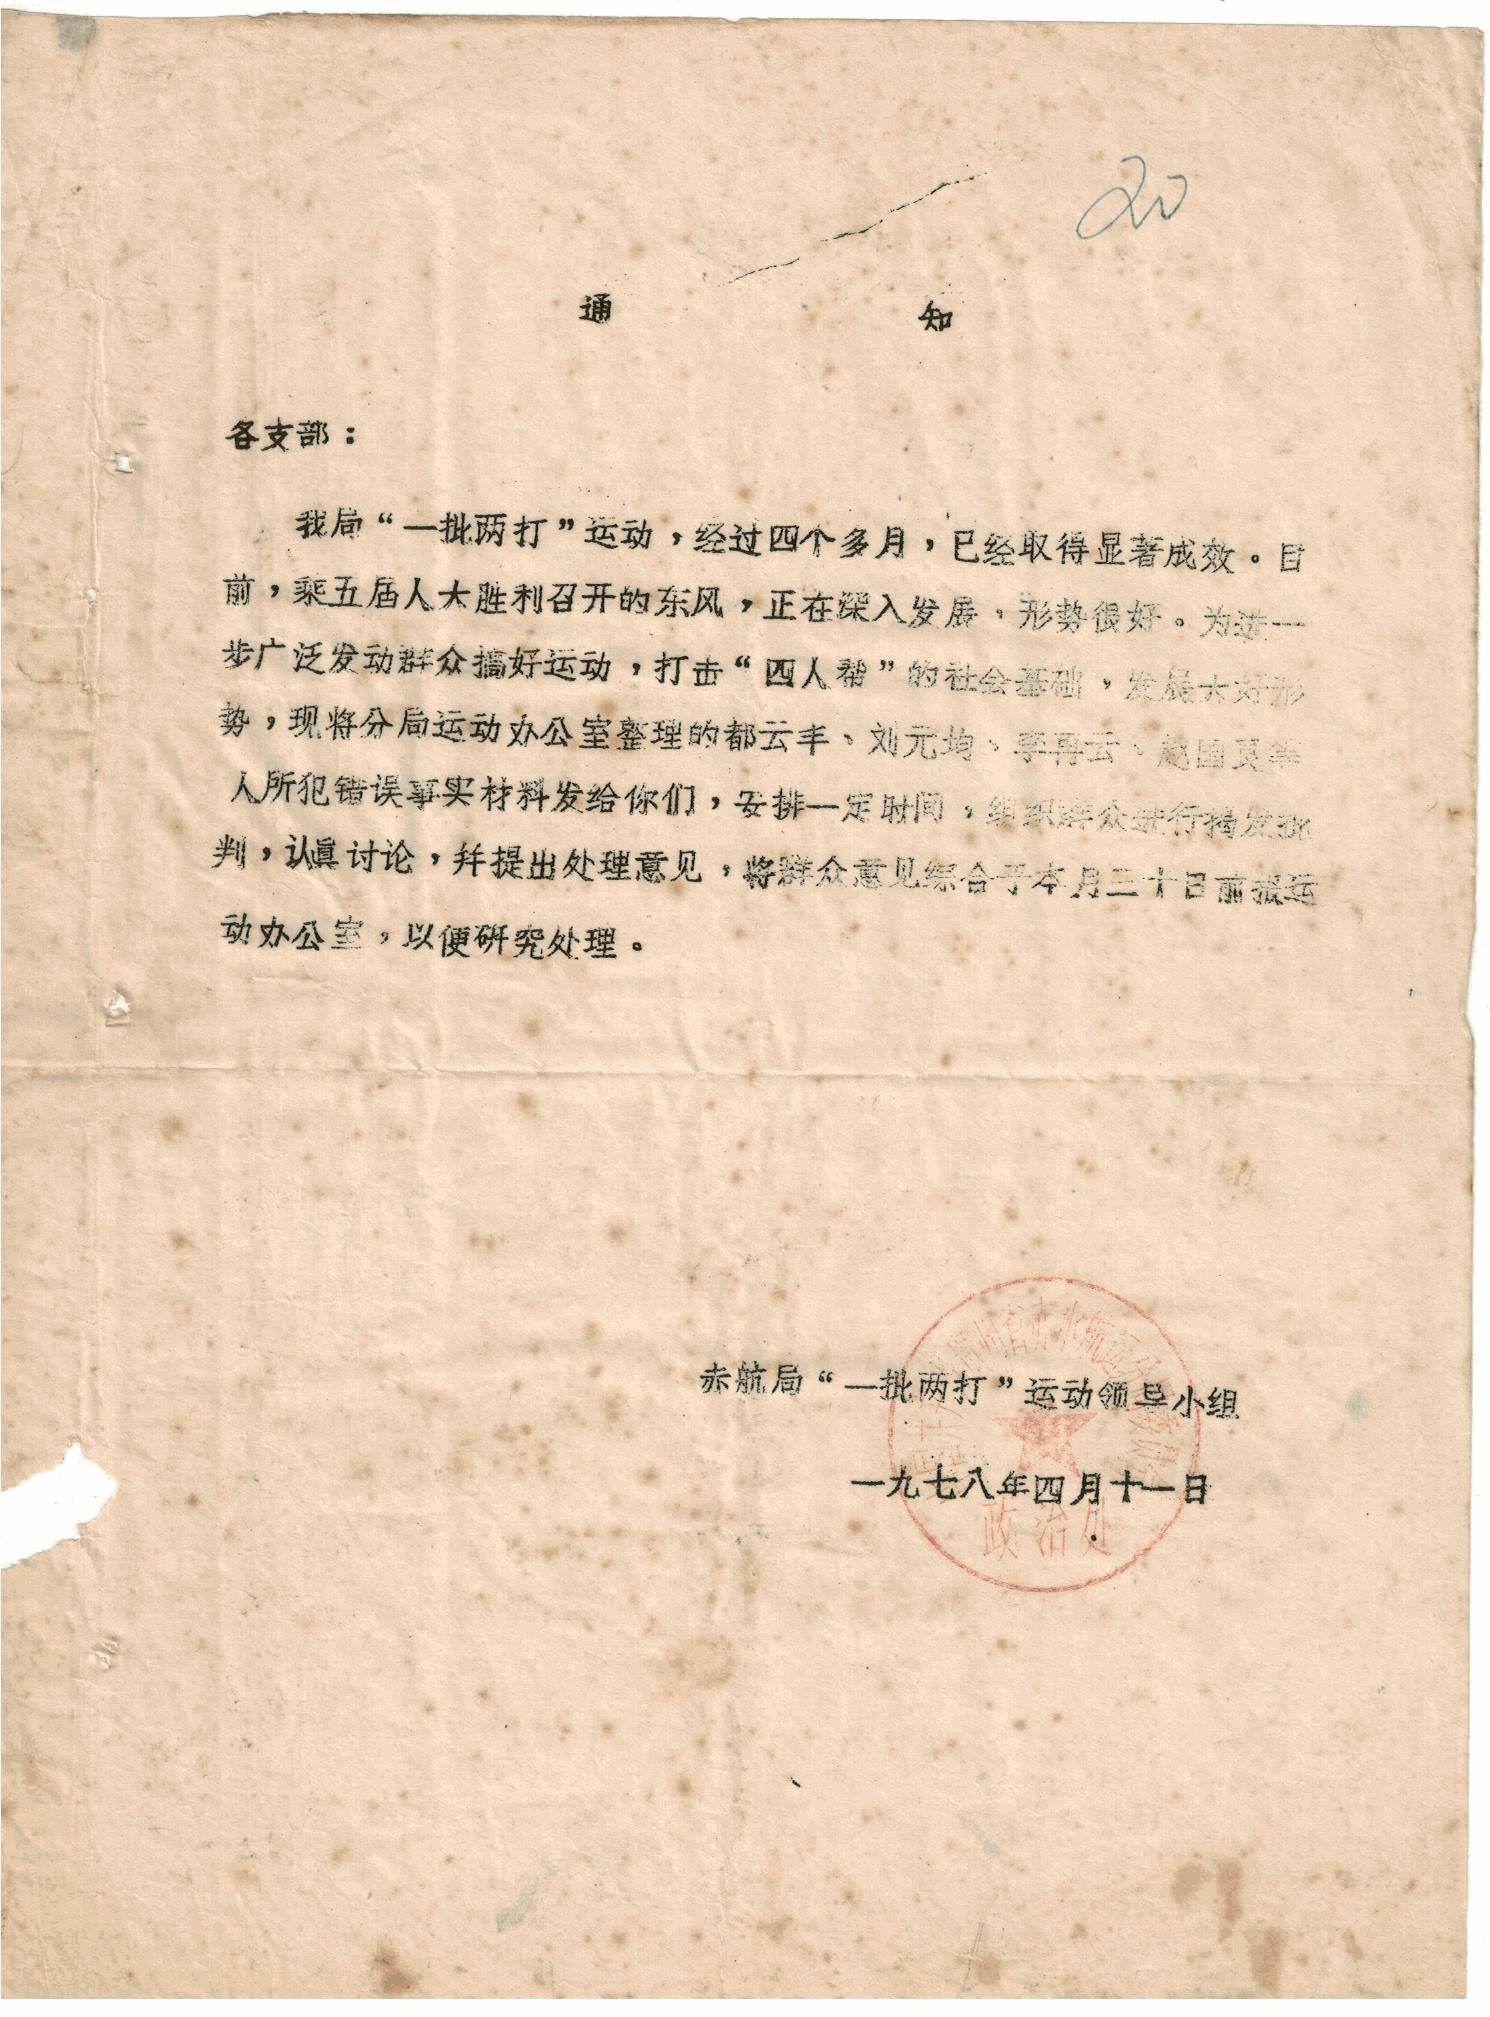 20
通 知
各支部：
我局“一批两打”运动，经过四个多月，已经取得显著成效。目
前，乘五届人大胜利召开的东风，正在深入发展，形势很好。为进一
步广泛发动群众搞好运动，打击“四人帮”的社会基础，发展大好形
势，现将分局运动办公室整理的都云丰、刘元均、李再云、赵国良等
人所犯错误事实材料发给你们，安排一定时间，组织群众进行揭发批
判，认眞讨论，并提出处理意见，将群众意见综合于本月二十日前报运
动办公室，以便研究处理。
赤航局“一批两打”运动领导小组
一九七八年四月十一日
政治处